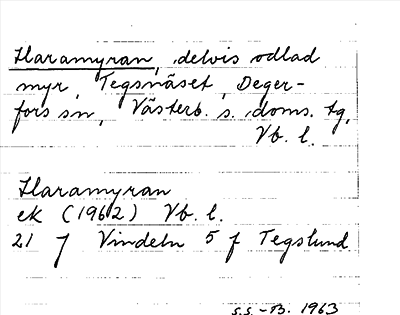 Haramyran, delvis odlad
myr, Tegsnäset, Deger-
fors sn, Västerb. s. doms. tg,
Vb. l.
Haramyran
ek (1962) Vb. l.
21 J Vindeln 5 f Tegslund
S.S.-B. 1963